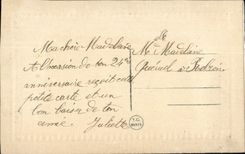 Ma chère Madelaine
A l'occasion de ton 24me
anniversaire reçoit cette
petite carte et un
bon baiser de ton
amie. Juliette
Melle Madelaine
à